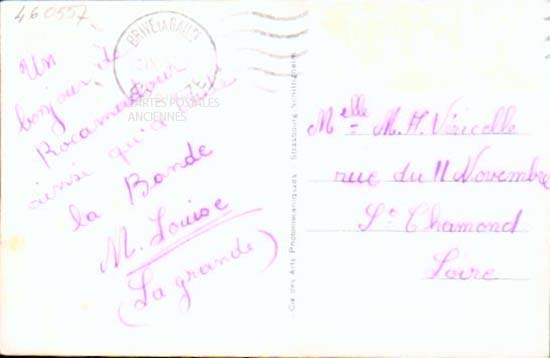 460557
BRIVE LA GAILLARDE
CARTES POSTALES
ANCIENNES
Un
bonjour de
Rocamadour
ainsi qu'à toute
la Bande
M. Louise
(La grande)
Cie des Arts Photomécaniques Strasbourg-Schiltigheim
Melle M. A. Véricelle
rue du 11 Novembre
St Chamond
Loire